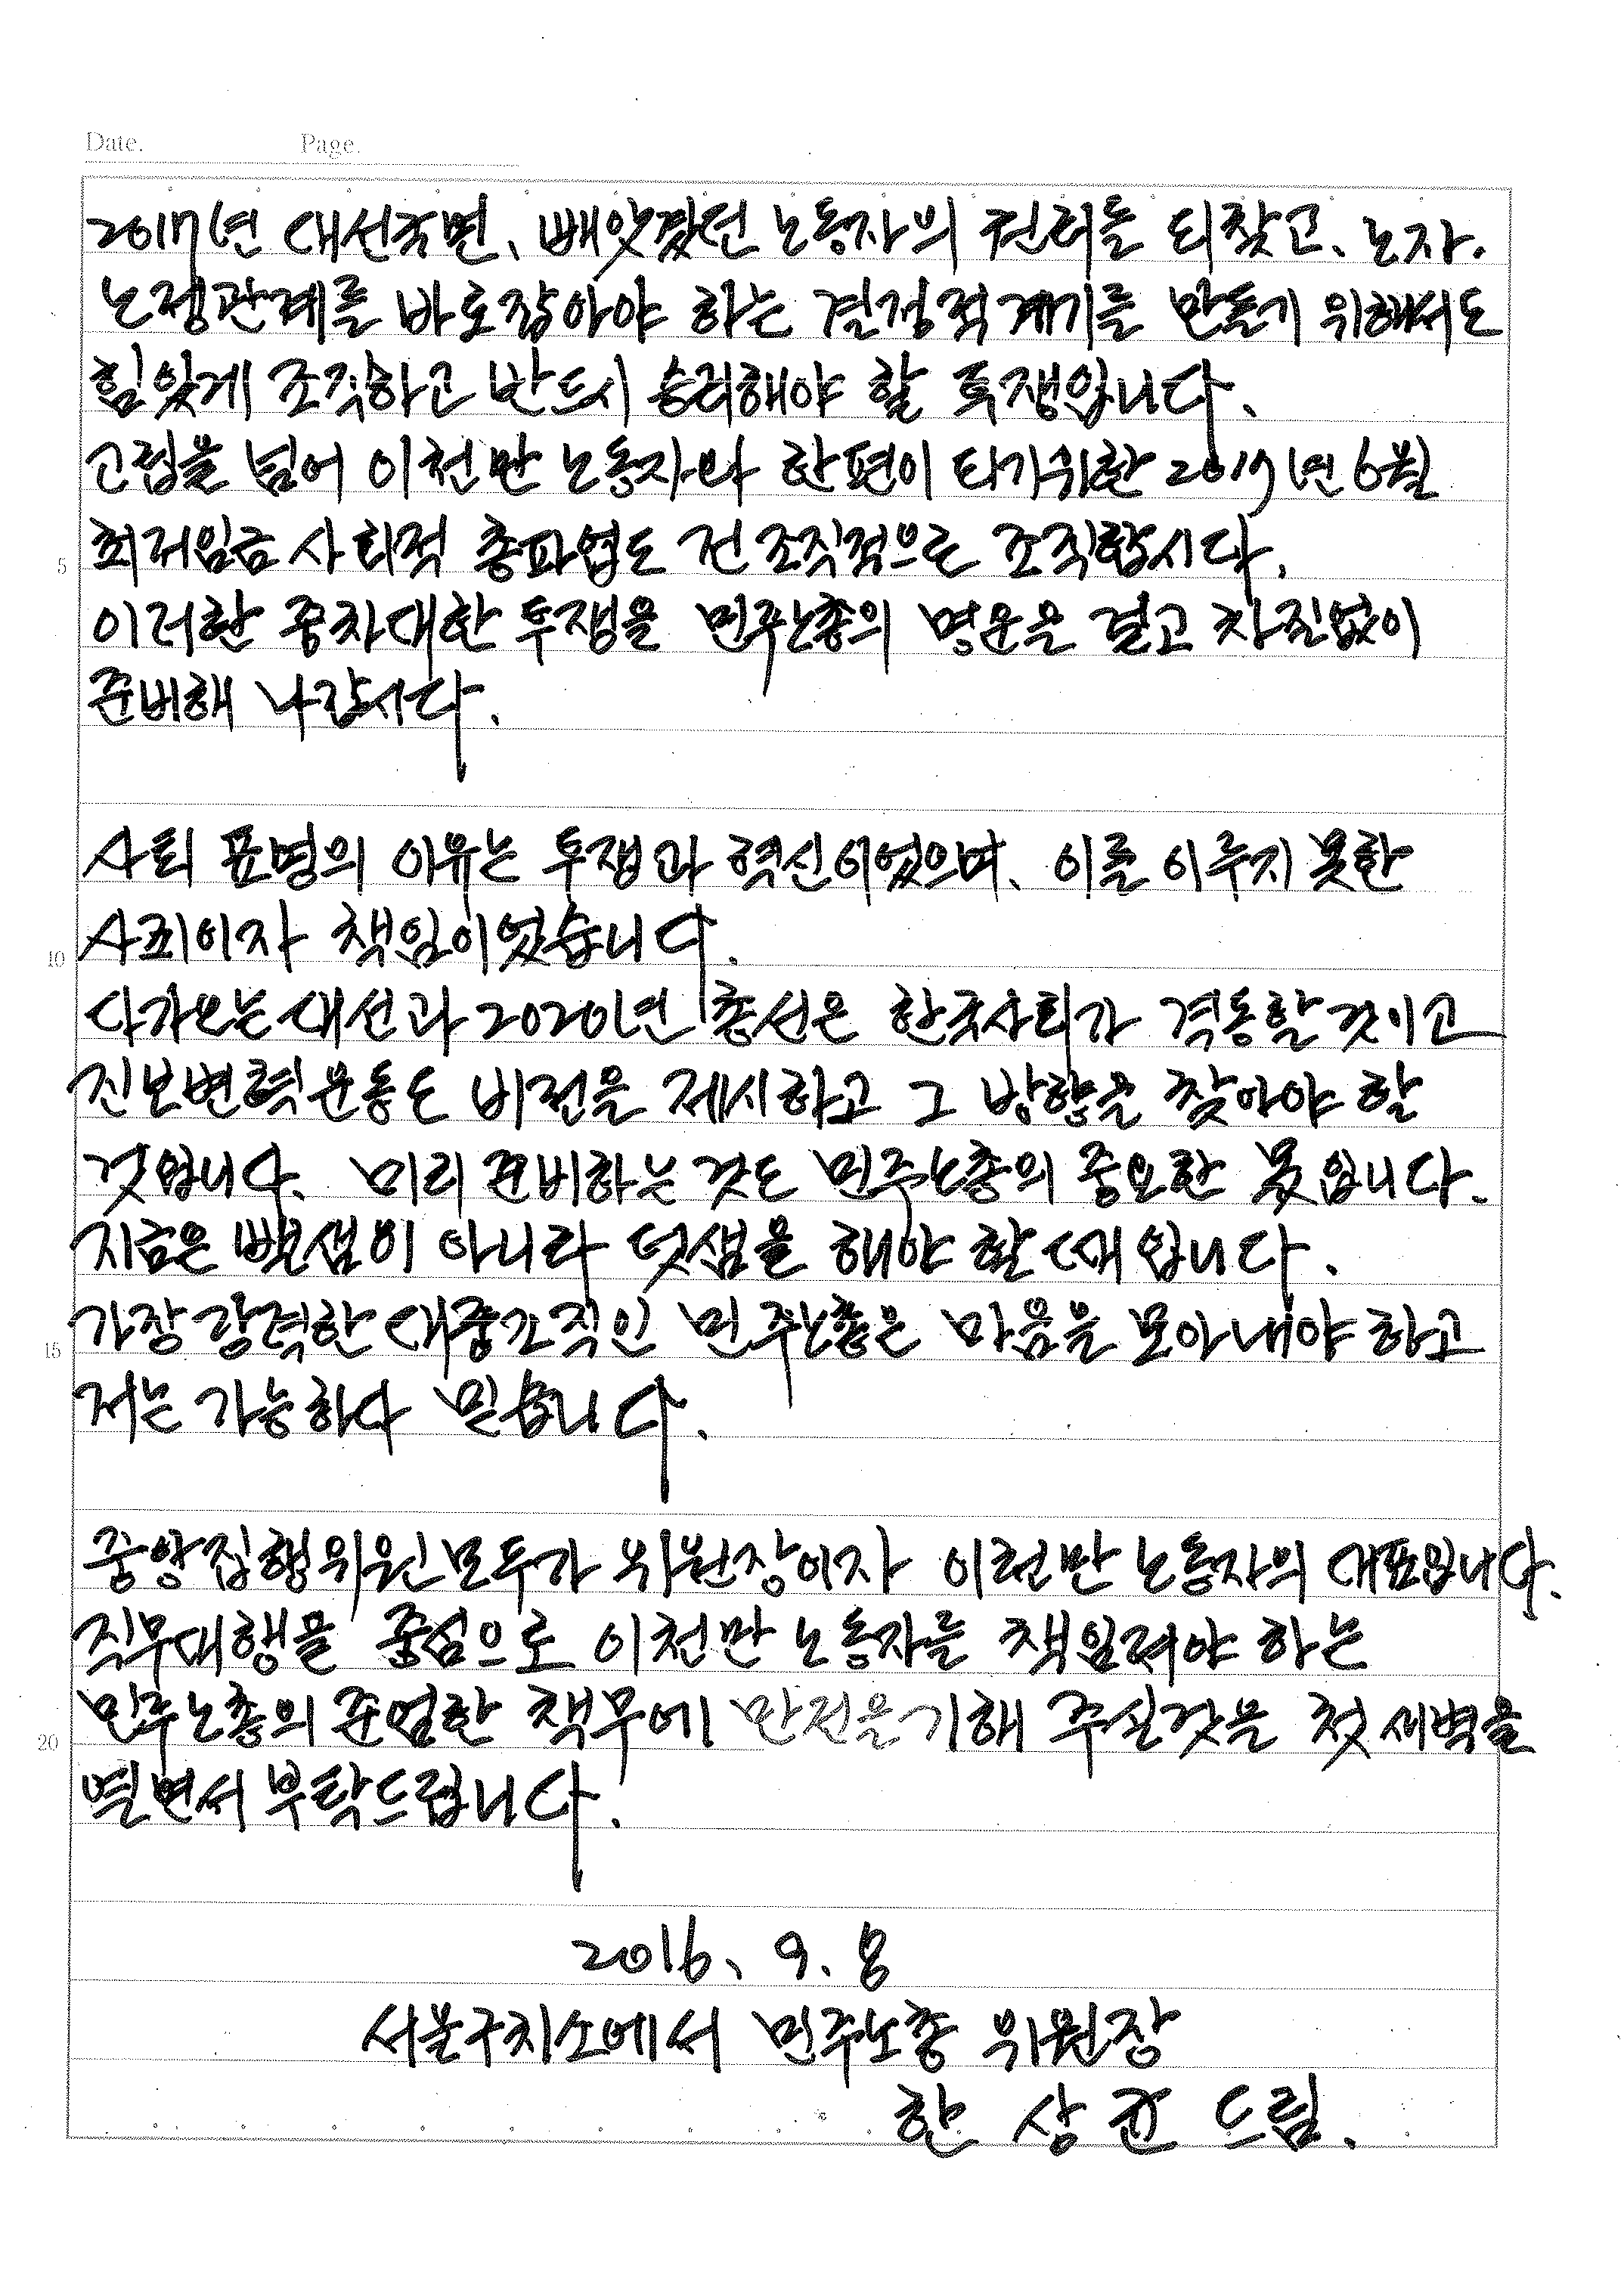 Date. Page.
2017년 대선국면, 빼앗겼던 노동자의 권리를 되찾고, 노자.
노정관계를 바로잡아야 하는 결정적 계기를 만들기 위해서도
힘있게 조직하고 반드시 승리해야 할 투쟁입니다.
고립을 넘어 이천만 노동자와 한편이 되기위한 2017년 6월
5 최저임금 사회적 총파업도 전 조직적으로 조직합시다.
이러한 중차대한 투쟁을 민주노총의 명운을 걸고 차질없이
준비해 나갑시다.
사퇴 표명의 이유는 투쟁과 혁신이었으며, 이를 이루지 못한
10 사죄이자 책임이었습니다.
다가오는 대선과 2020년 총선은 한국사회가 격동할것이고
진보변혁운동도 비전을 제시하고 그 방향을 찾아야 할
것입니다. 미리 준비하는 것도 민주노총의 중요한 몫입니다.
지금은 뺄셈이 아니라 덧셈을 해야 할 때입니다.
15 가장 강력한 대중조직인 민주노총은 마음을 모아내야 하고
저는 가능하다 믿습니다.
중앙집행위원 모두가 위원장이자 이천만 노동자의 대표입니다.
직무대행을 중심으로 이천만 노동자를 책임져야 하는
20 민주노총의 준엄한 책무에 만전을기해 주실것을 첫 새벽을
열면서 부탁드립니다.
2016. 9. 8
서울구치소에서 민주노총 위원장
한 상 균 드림.